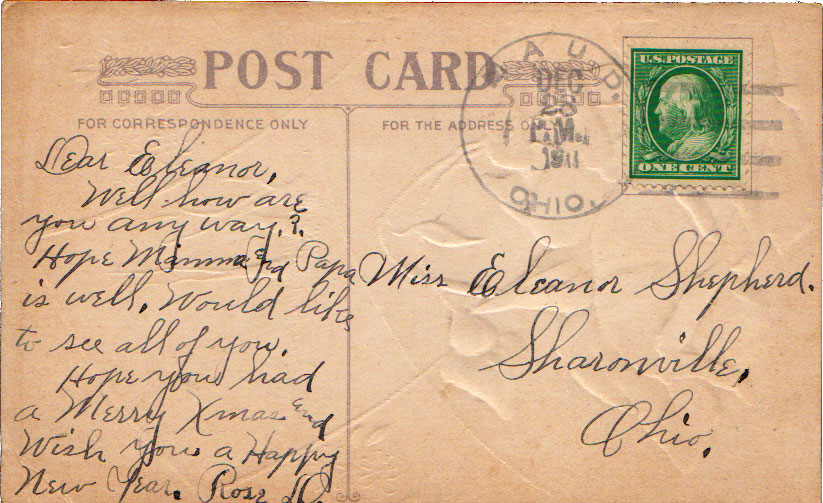 POST CARD
FOR CORRESPONDENCE ONLY
FOR THE ADDRESS ONLY
DEC
P.M.
1911
OHIO.
U.S. POSTAGE
ONE CENT
Dear Eleanor,
Well how are
you any way.?
Hope Mamma and Papa
is well. Would like
to see all of you.
Hope you had
a Merry Xmas and
Wish you a Happy
New Year. Rose D.
Miss Eleanor Shepherd.
Sharonville,
Ohio.